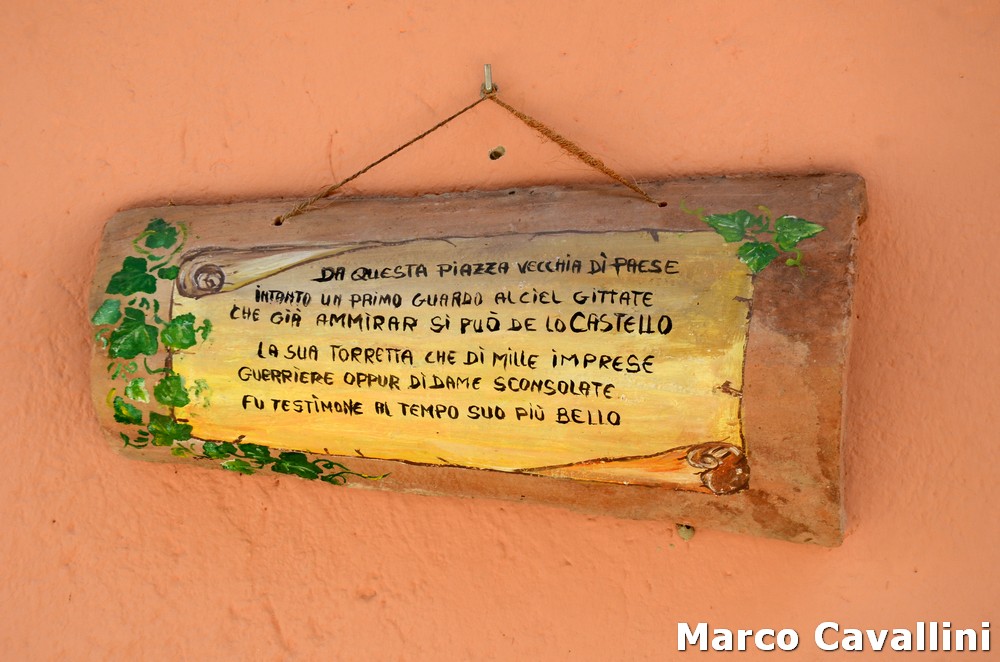 DA QUESTA PIAZZA VECCHIA DÌ PAESE
INTANTO UN PRIMO GUARDO AL CIEL GITTATE
CHE GIÀ AMMIRAR SI PUÒ DE LO CASTELLO
LA SUA TORRETTA CHE DI MILLE IMPRESE
GUERRIERE OPPUR DI DAME SCONSOLATE
FU TESTIMONE AL TEMPO SUO PIÙ BELLO
Marco Cavallini